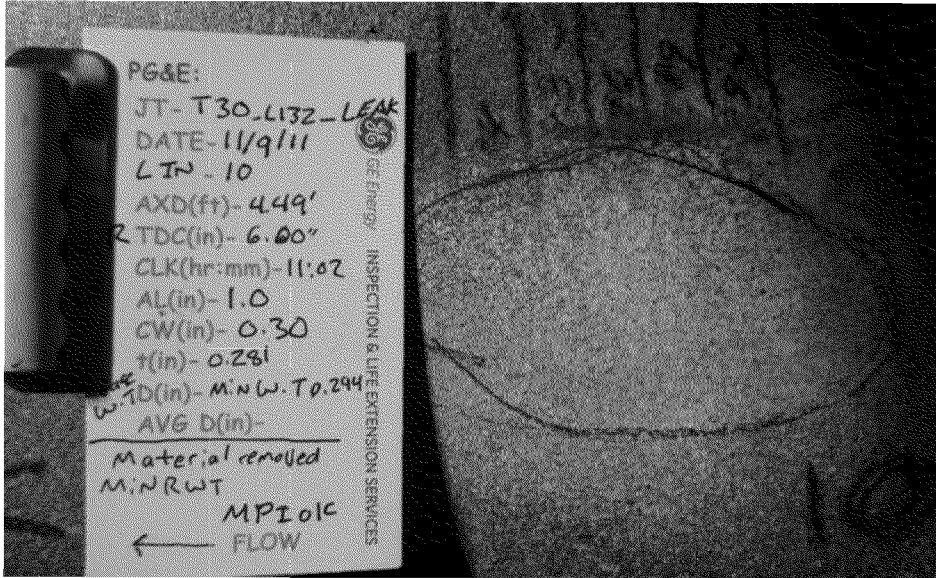 PG&E:
JT- T30_L132_LEAK
DATE- 11/9/11
LIN - 10
AXD(ft)- 4.49'
R TDC(in)- 6.00"
CLK(hr:mm)- 11:02
AL(in)- 1.0
CW(in)- 0.30
t(in)- 0.281
W.T D(in)- MiN W.T 0.294
AVG D(in)-
Material removed
MiN RWT
MPI01C
← FLOW
GE Energy INSPECTION & LIFE EXTENSION SERVICES